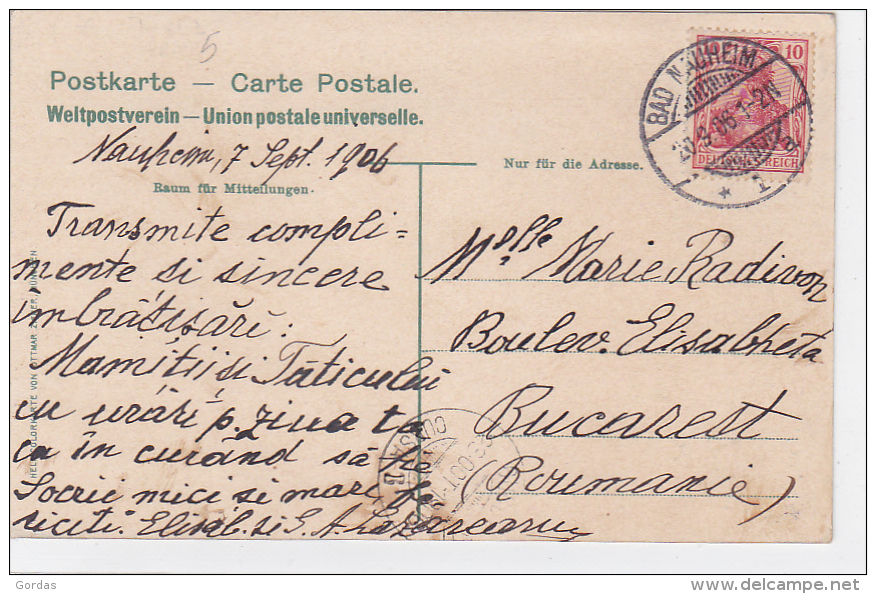 5
Postkarte — Carte Postale.
Weltpostverein — Union postale universelle.
Nauheim, 7 Sept. 1906
Nur für die Adresse.
Raum für Mitteilungen.
BAD NAUHEIM
10
DEUTSCHES REICH
Transmite compli=
mente si sincere
imbrățișări:
Mamiții si Táticului
cu urări p. ziua ta
ca în curând să
Socrii mici si mari fe
riciti. Elisab. si
Mselle Marie Radivon
Boulev. Elisabheta
Bucarest
(Roumanie)
HELIOCOLORKARTE VON OTTMAR ZIEHER, MÜNCHEN
Gordas
delcampe.net